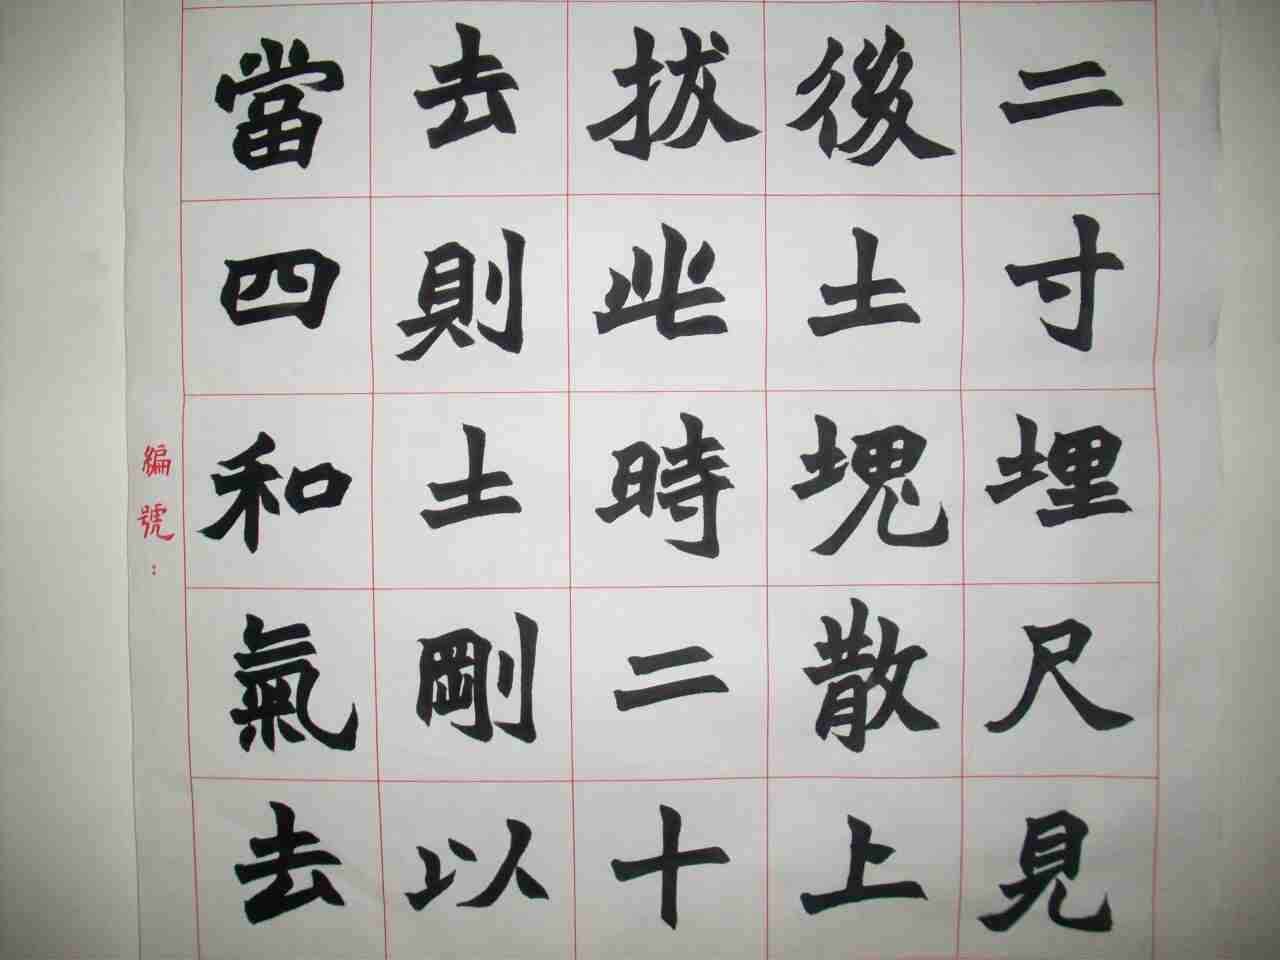 二寸埋尺見
後土塊散上
拔此時二十
去則土剛以
當四和氣去
編號：